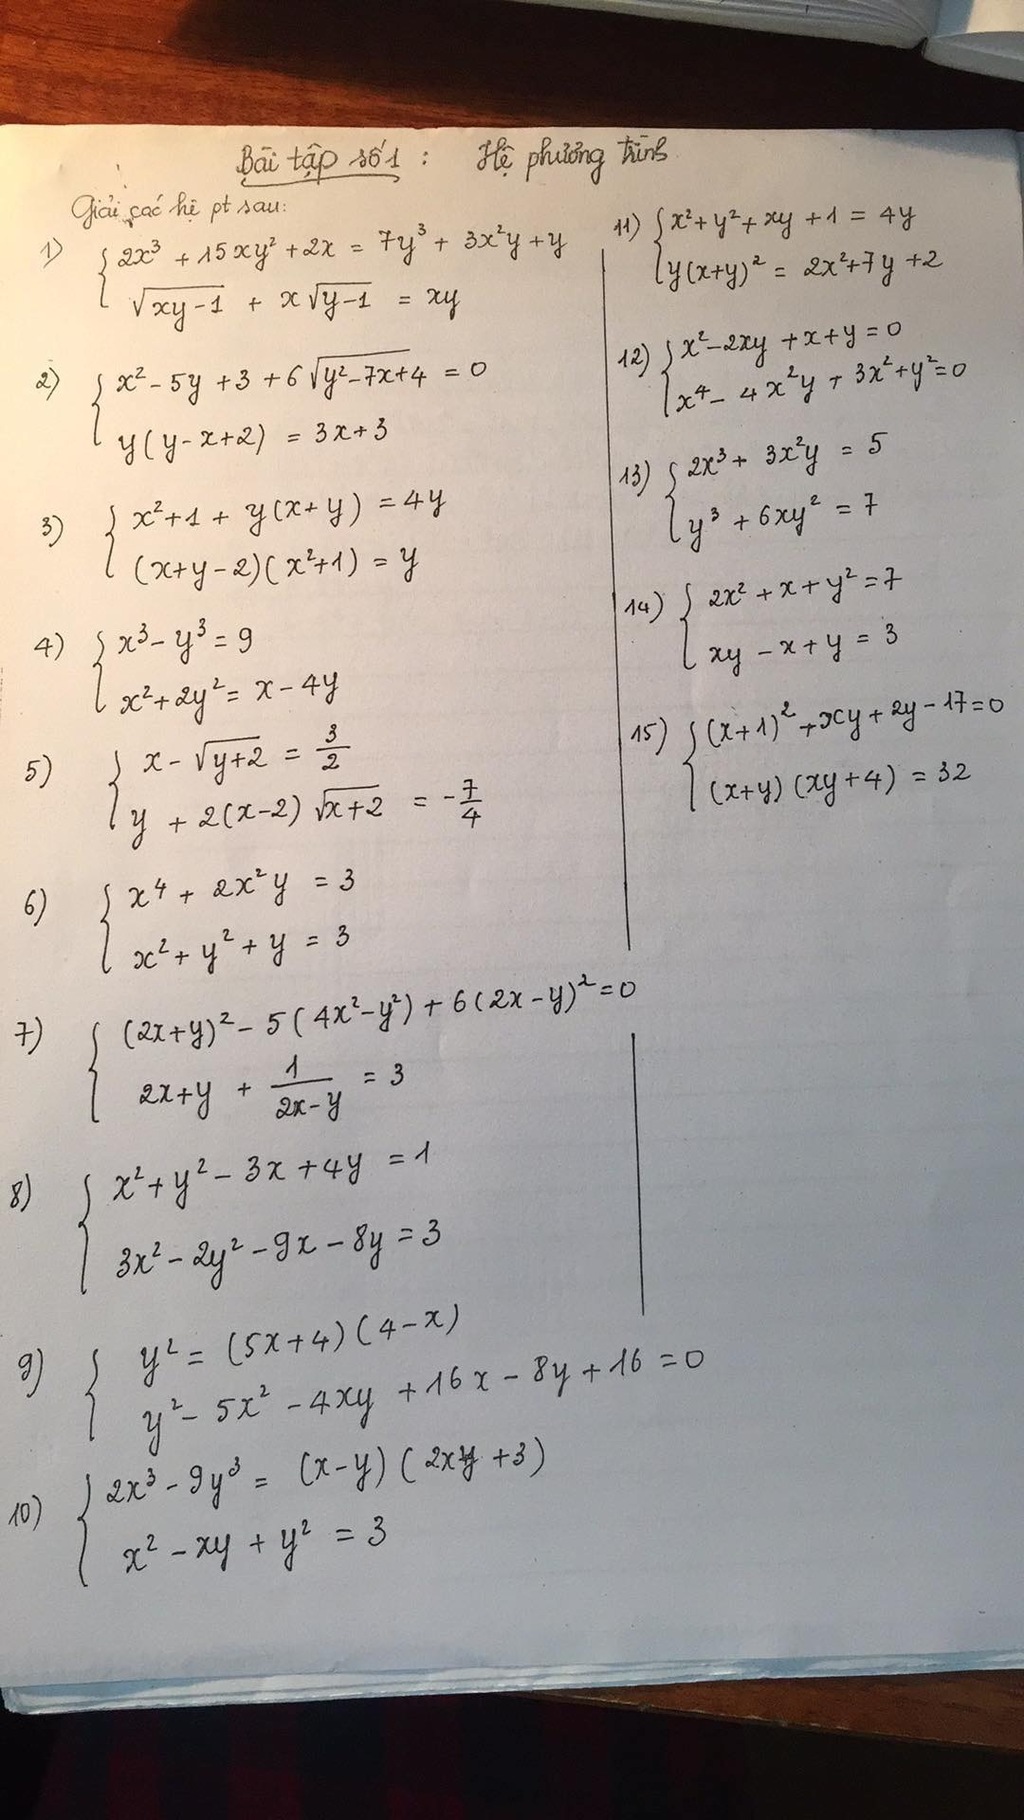 Bài tập số 1 : Hệ phương trình
Giải các hệ pt sau:
1) { 2x³ + 15xy² + 2x = 7y³ + 3x²y + y
√(xy-1) + x√(y-1) = xy
2) { x² - 5y + 3 + 6√(y²-7x+4) = 0
y(y-x+2) = 3x+3
3) { x²+1 + y(x+y) = 4y
(x+y-2)(x²+1) = y
4) { x³ - y³ = 9
x² + 2y² = x - 4y
5) { x - √(y+2) = 3/2
y + 2(x-2)√(x+2) = -7/4
6) { x⁴ + 2x²y = 3
x² + y² + y = 3
7) { (2x+y)² - 5(4x²-y²) + 6(2x-y)² = 0
2x+y + 1/(2x-y) = 3
8) { x² + y² - 3x + 4y = 1
3x² - 2y² - 9x - 8y = 3
9) { y² = (5x+4)(4-x)
y² - 5x² - 4xy + 16x - 8y + 16 = 0
10) { 2x³ - 9y³ = (x-y)(2xy+3)
x² - xy + y² = 3
11) { x² + y² + xy + 1 = 4y
y(x+y)² = 2x² + 7y + 2
12) { x² - 2xy + x + y = 0
x⁴ - 4x²y + 3x² + y² = 0
13) { 2x³ + 3x²y = 5
y³ + 6xy² = 7
14) { 2x² + x + y² = 7
xy - x + y = 3
15) { (x+1)² + xy + 2y - 17 = 0
(x+y)(xy+4) = 32